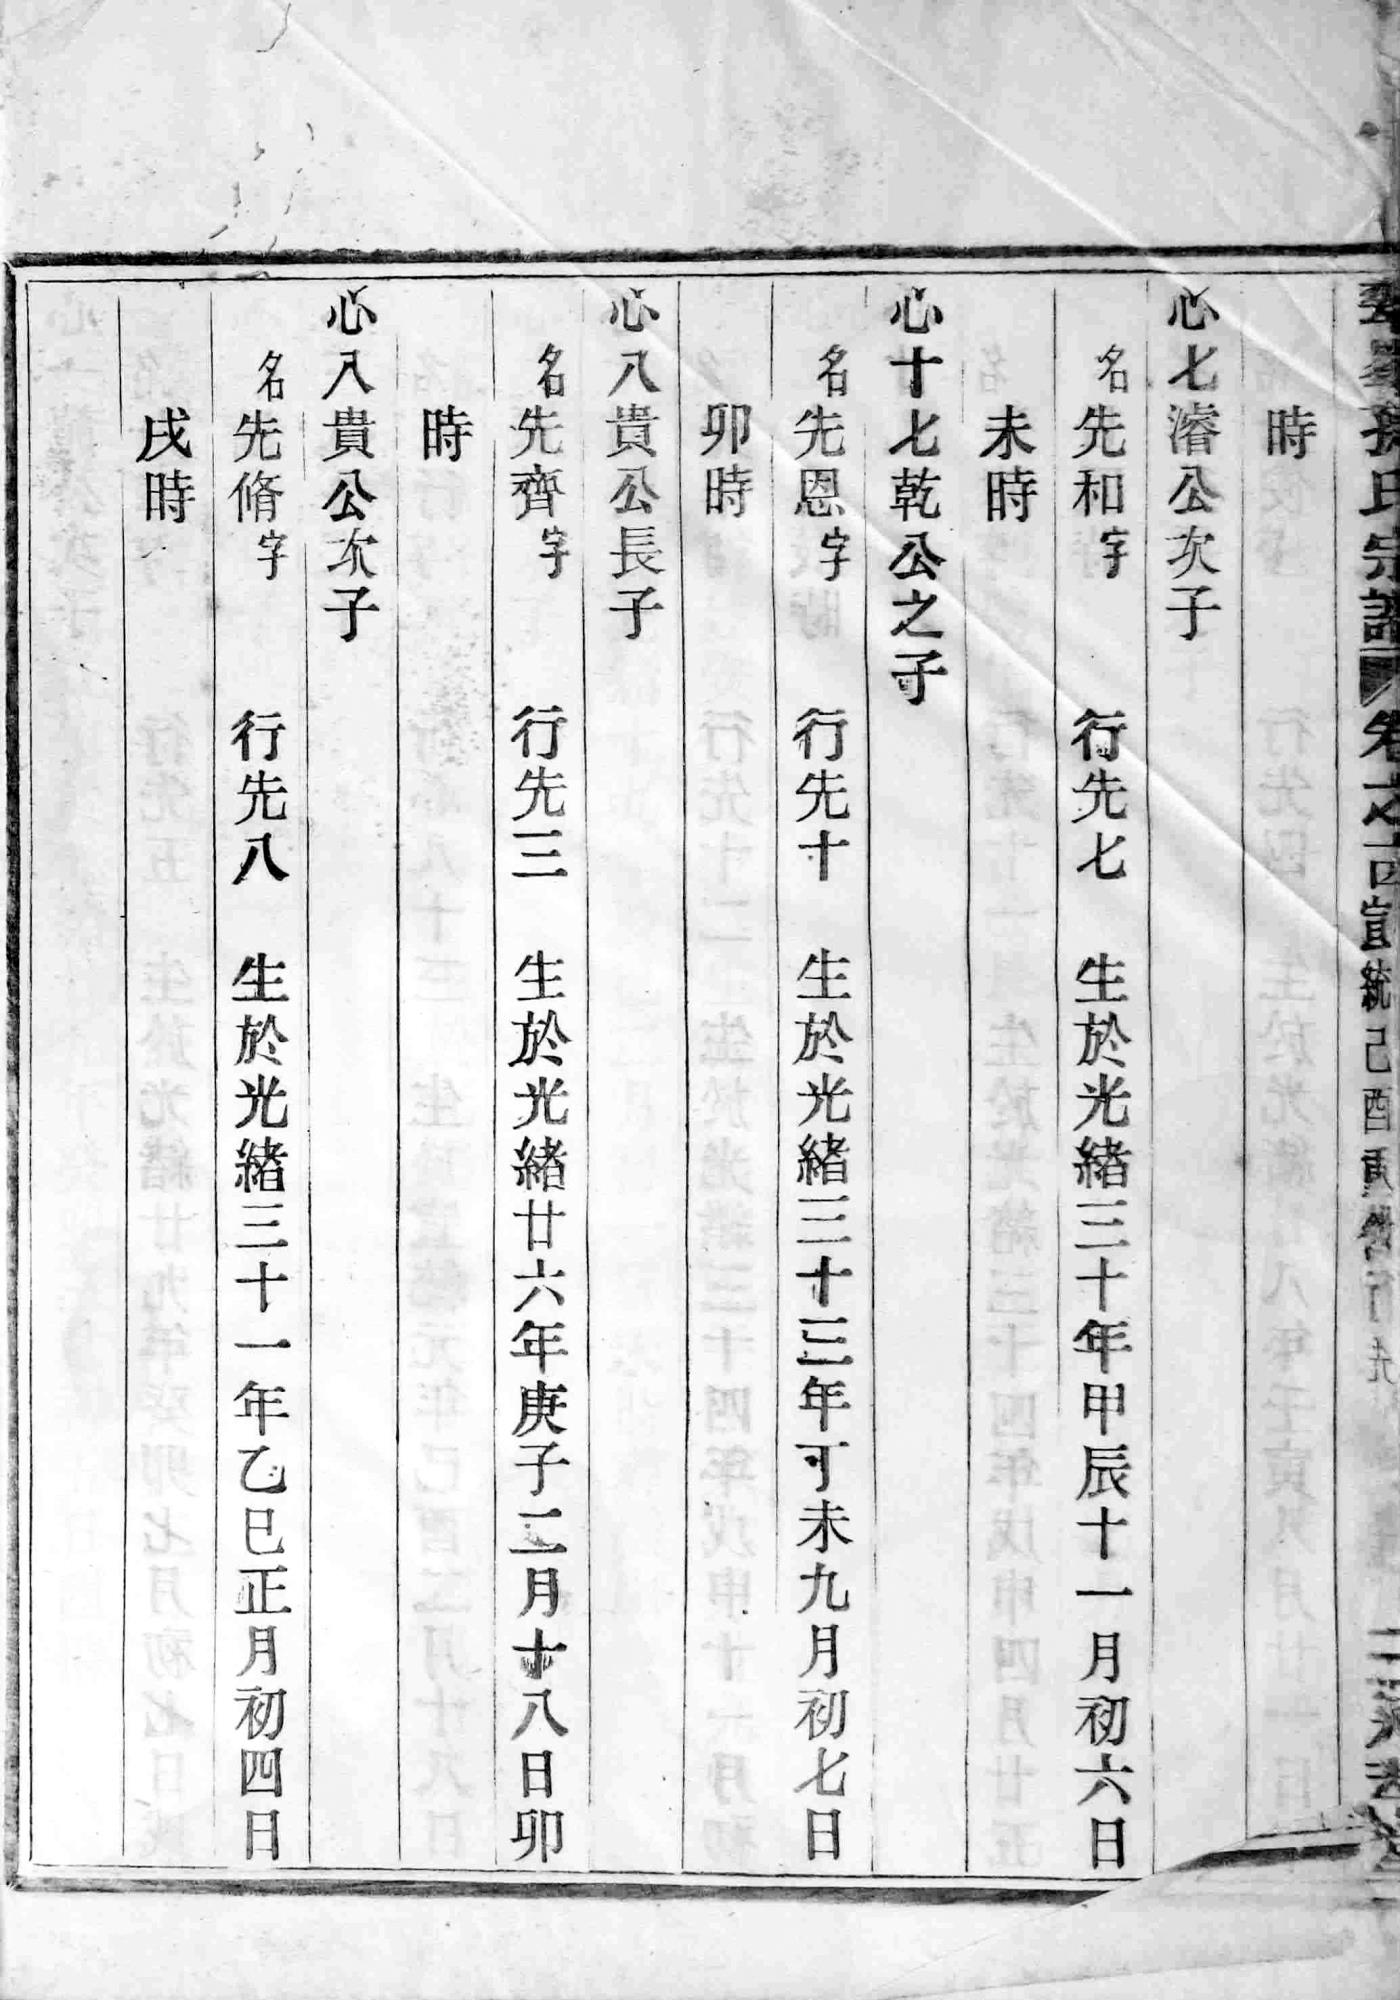 孫氏宗譜 卷之 宣統己酉重修行先
時
心七濬公次子
名先和字 行先七 生於光緒三十年甲辰十一月初六日
未時
心十七乾公之子
名先恩字 行先十 生於光緒三十三年丁未九月初七日
卯時
心八貴公長子
名先齊字 行先三 生於光緒廿六年庚子二月十八日卯
時
心八貴公次子
名先脩字 行先八 生於光緒三十一年乙巳正月初四日
戌時